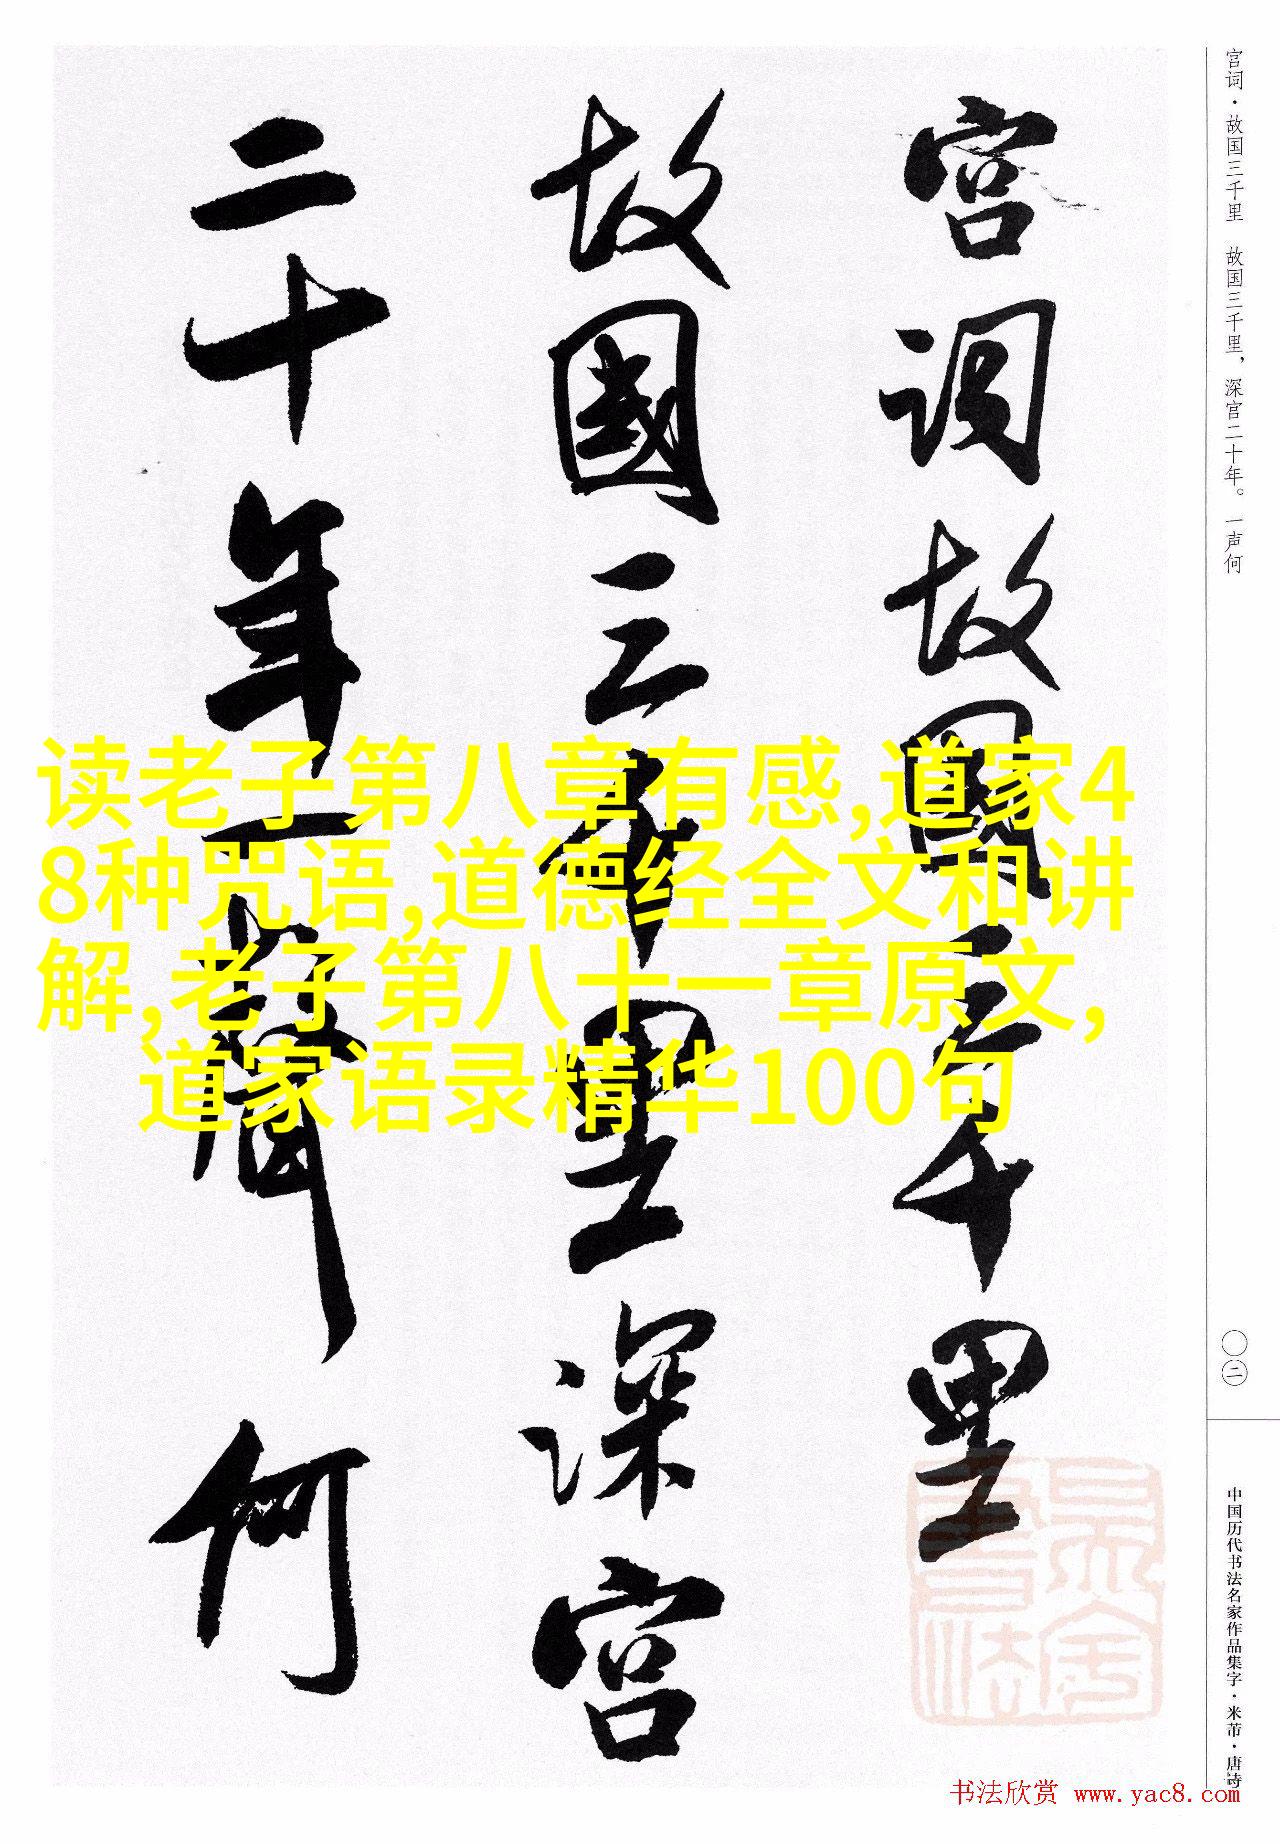 宫词·故国三千里 故国三千里，深宫二十年。一声何
宫词故國三千里
故國三千里深宫
二十年一聲何
读老子第八章有感,道家4
8种咒语,道德经全文和讲
解,老子第八十一章原文,
道家语录精华100句
〇二
中国历代书法名家作品集字·米芾·唐诗
书法欣赏 www.yac8.com